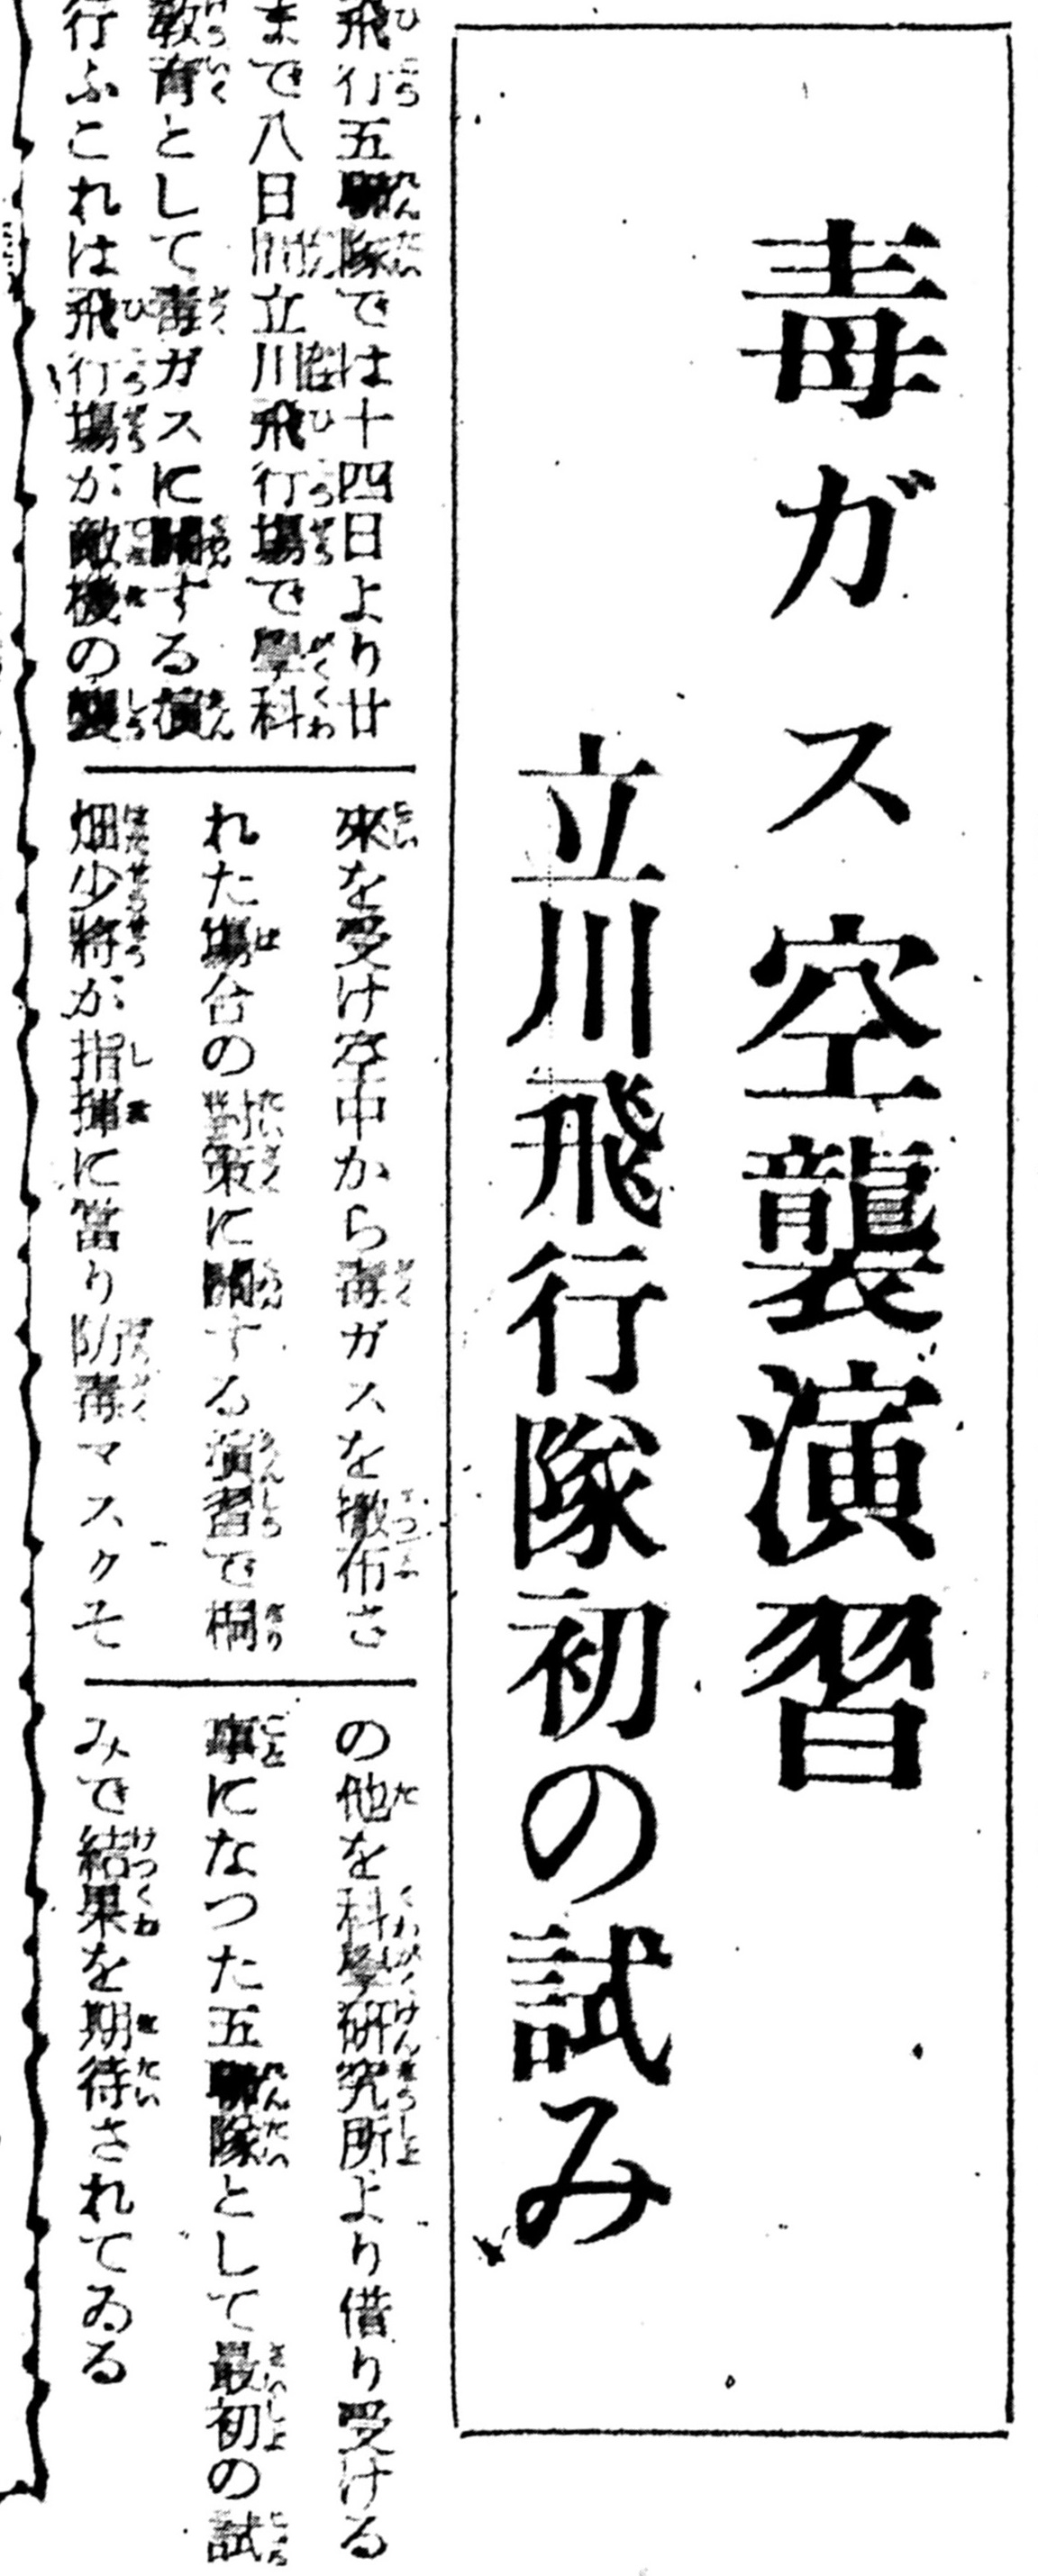 毒ガス空襲演習
立川飛行隊初の試み
飛行五聯隊では十四日より廿
まで八日間立川飛行場で學科
教育として毒ガスに關する演
行ふこれは飛行場が敵機の襲
來を受け空中から毒ガスを撒布さ
れた場合の對策に關する演習で桐
畑少將が指揮に當り防毒マスクそ
の他を科學研究所より借り受ける
事になつた五聯隊として最初の試
みで結果を期待されてゐる